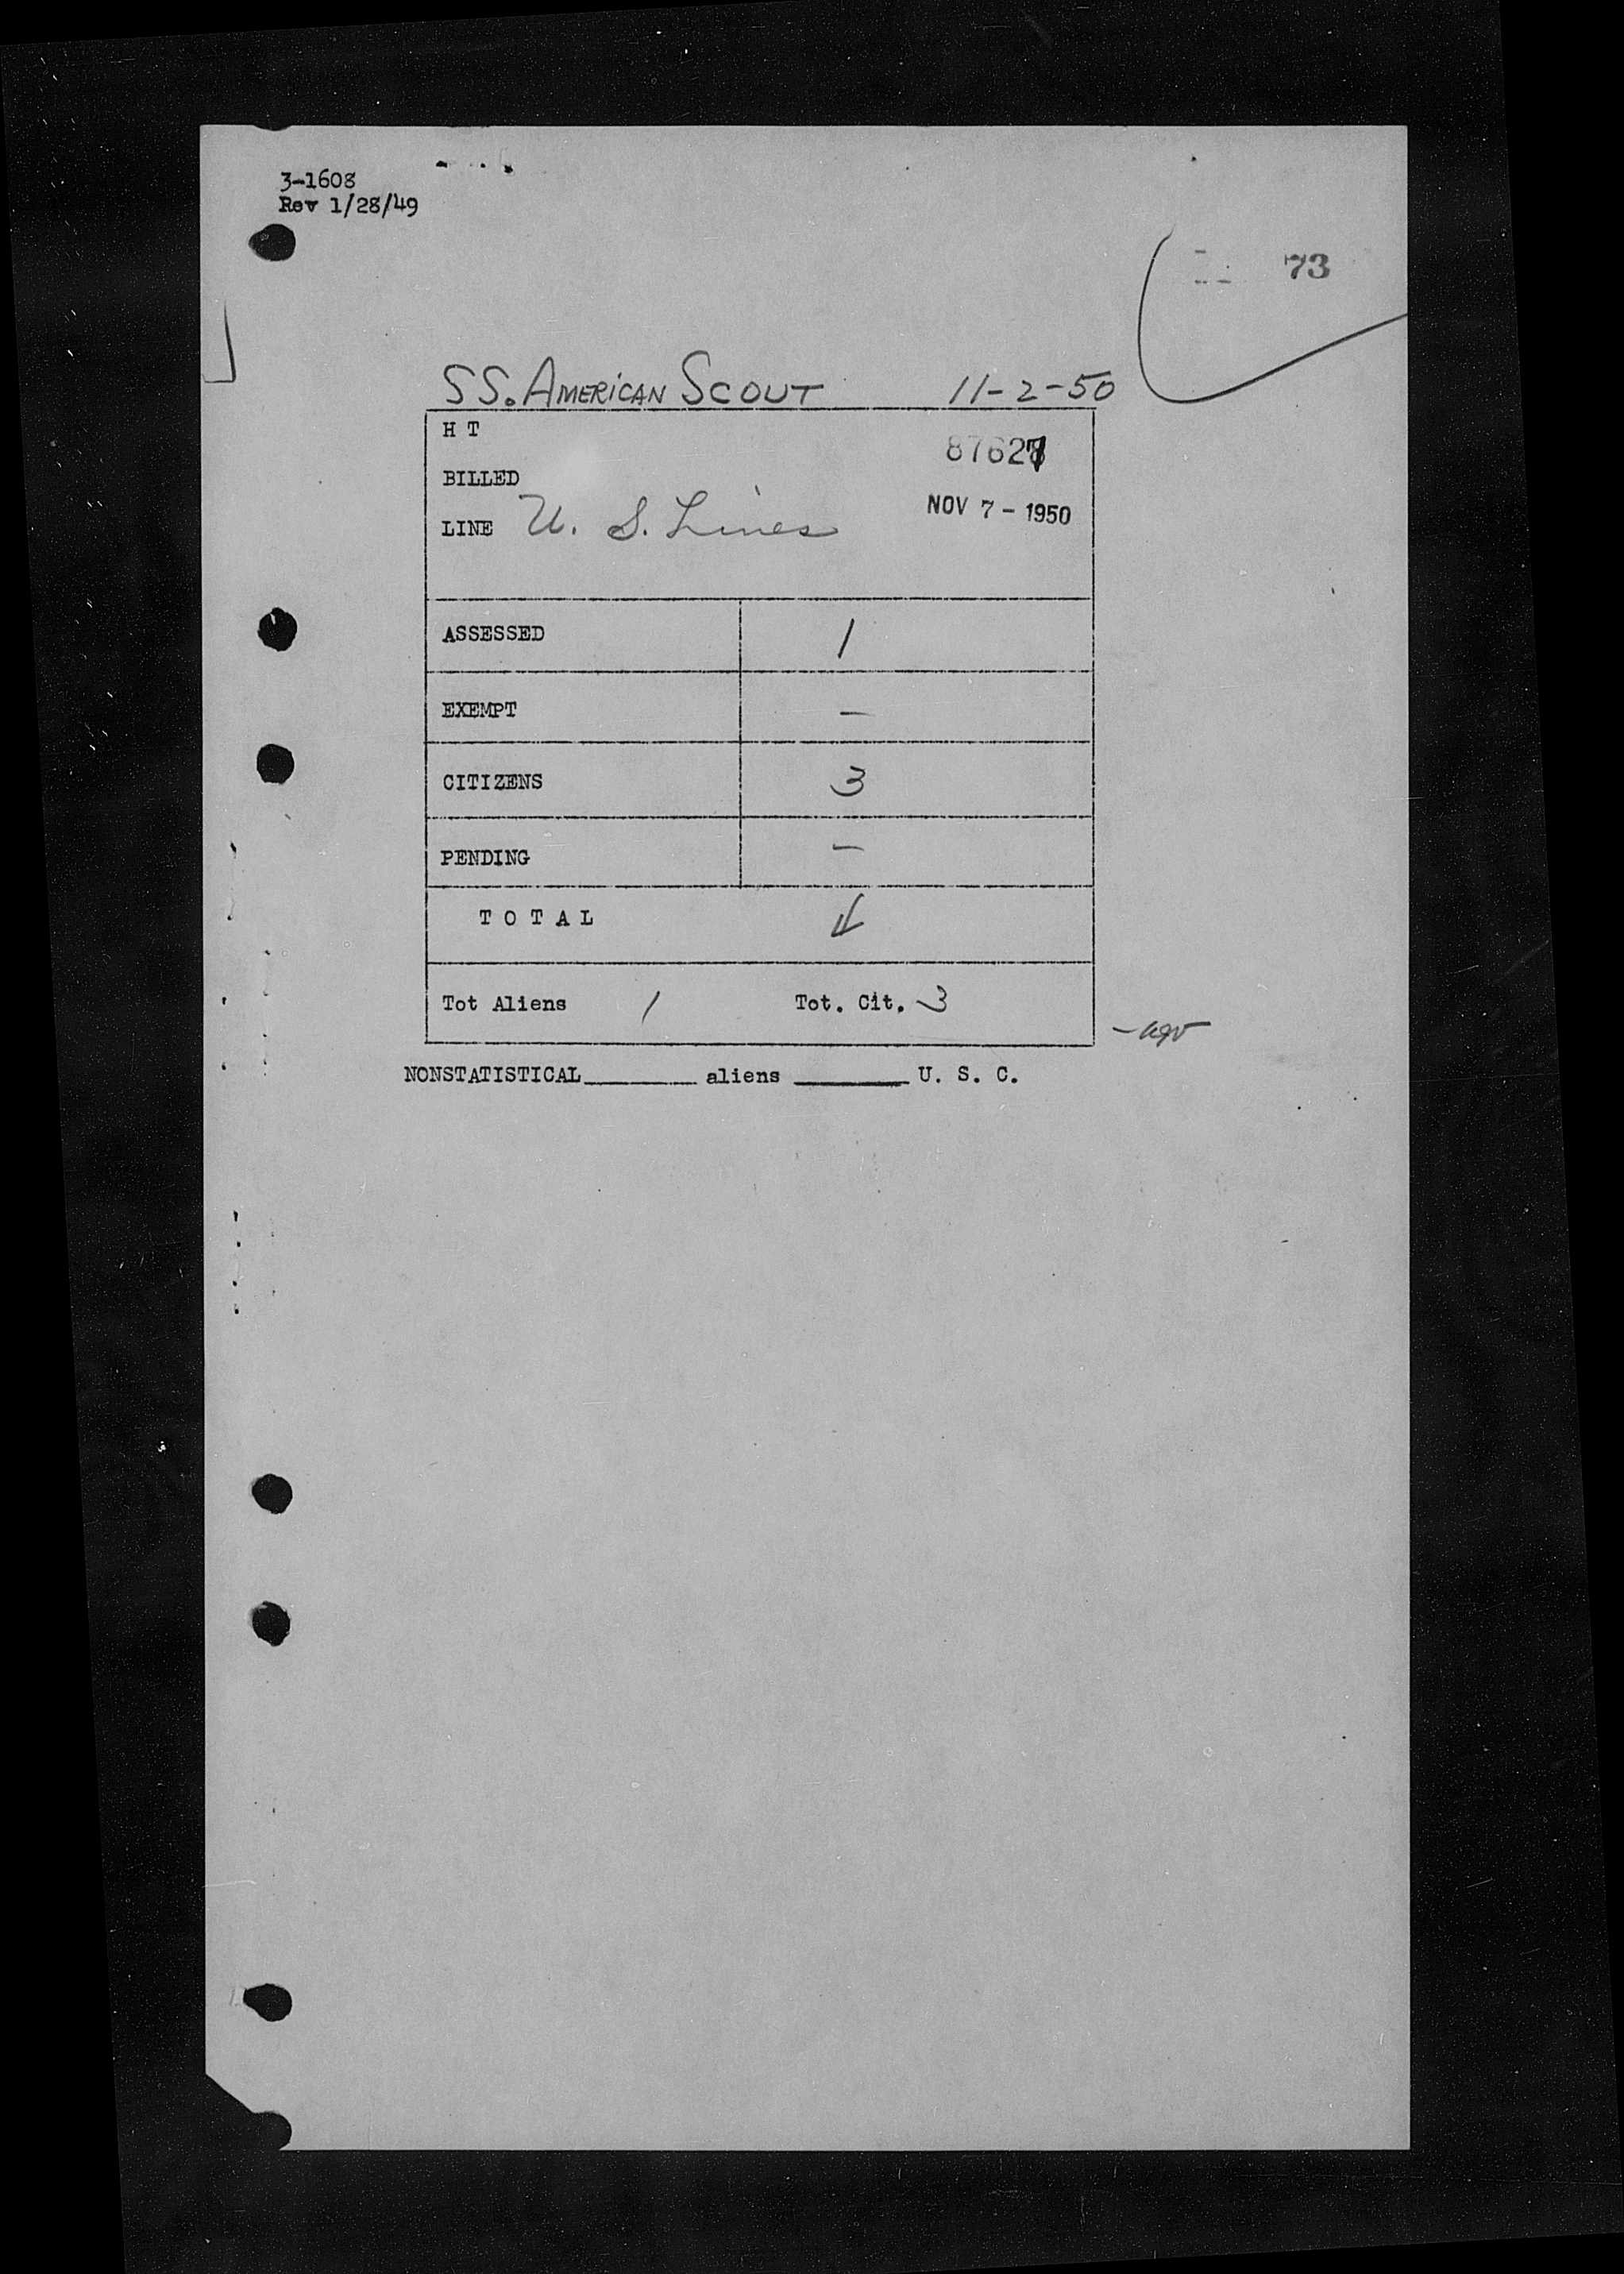 3-1608
Rev 1/28/49
73
SS. AMERICAN SCOUT 11-2-50
H T
BILLED
NOV 7 - 1950
LINE U. S. Lines
ASSESSED 1
EXEMPT —
CITIZENS 3
PENDING —
T O T A L 4
Tot Aliens 1 Tot. Cit. 3
NONSTATISTICAL________ aliens ________ U. S. C.